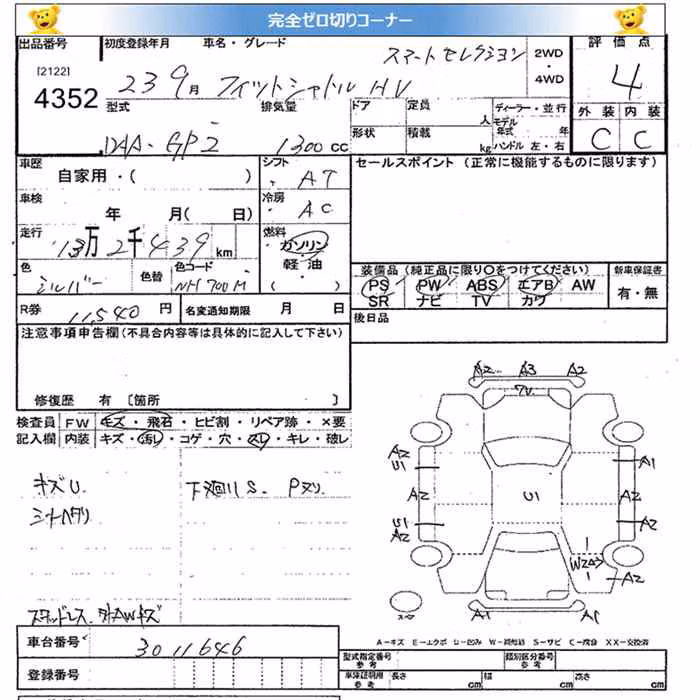 完全ゼロ切りコーナー
出品番号 初度登録年月 車名・グレード 評価点
[2122]
4352
23 9月 フィットシャトル HV スマートセレクション 2WD・4WD
4
型式 排気量 ドア 定員 人 ディーラー・並行
モデル年式 年
形状 積載 kg ハンドル 左・右
DAA-GP2 1300 CC
外装 内装
C C
車歴 シフト セールスポイント (正常に機能するものに限ります)
自家用・( ) AT
車検 冷房
年 月( 日) AC
走行 燃料
13万2千439km ガソリン・軽油・( )
色 色替 色コード
シルバー NH700M
装備品 (純正品に限り○をつけてください) 新車保証書
PS PW ABS エアB AW 有・無
SR ナビ TV カワ
R券 11,540円 名変通知期限 月 日
後日品
注意事項申告欄(不具合内容等は具体的に記入して下さい)
修復歴 有 [箇所 ]
検査員 FW キズ・飛石・ヒビ割・リペア跡・×要
記入欄 内装 キズ・汚レ・コゲ・穴・スレ・キレ・破レ
キズU. 下廻りS. Pヌリ
シートヘタリ
スタッドレス 外AWキズ
A2 A3 A2
A2 U1 A1
A2 U1 A2
U1 A2 A2
W2 A2
A1 A1
A-キズ E-エクボ U-凹み W-補修跡 S-サビ C-腐食 XX-交換済
車台番号 3011646
型式指定番号 参考 類別区分番号 参考
登録番号 車庫証明用 参考 長さ cm 幅 cm 高さ cm